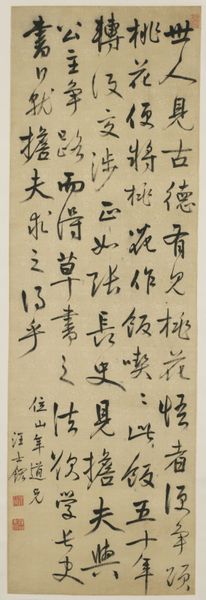 世人見古德有見桃花悟者便爭頌
桃花便將桃花作飯喫〻此飯五十年
轉沒交涉正如張長史見擔夫與
公主爭路而得草書之法欲學長史
書日就擔夫求之得乎
位山年道兄
汪士鋐